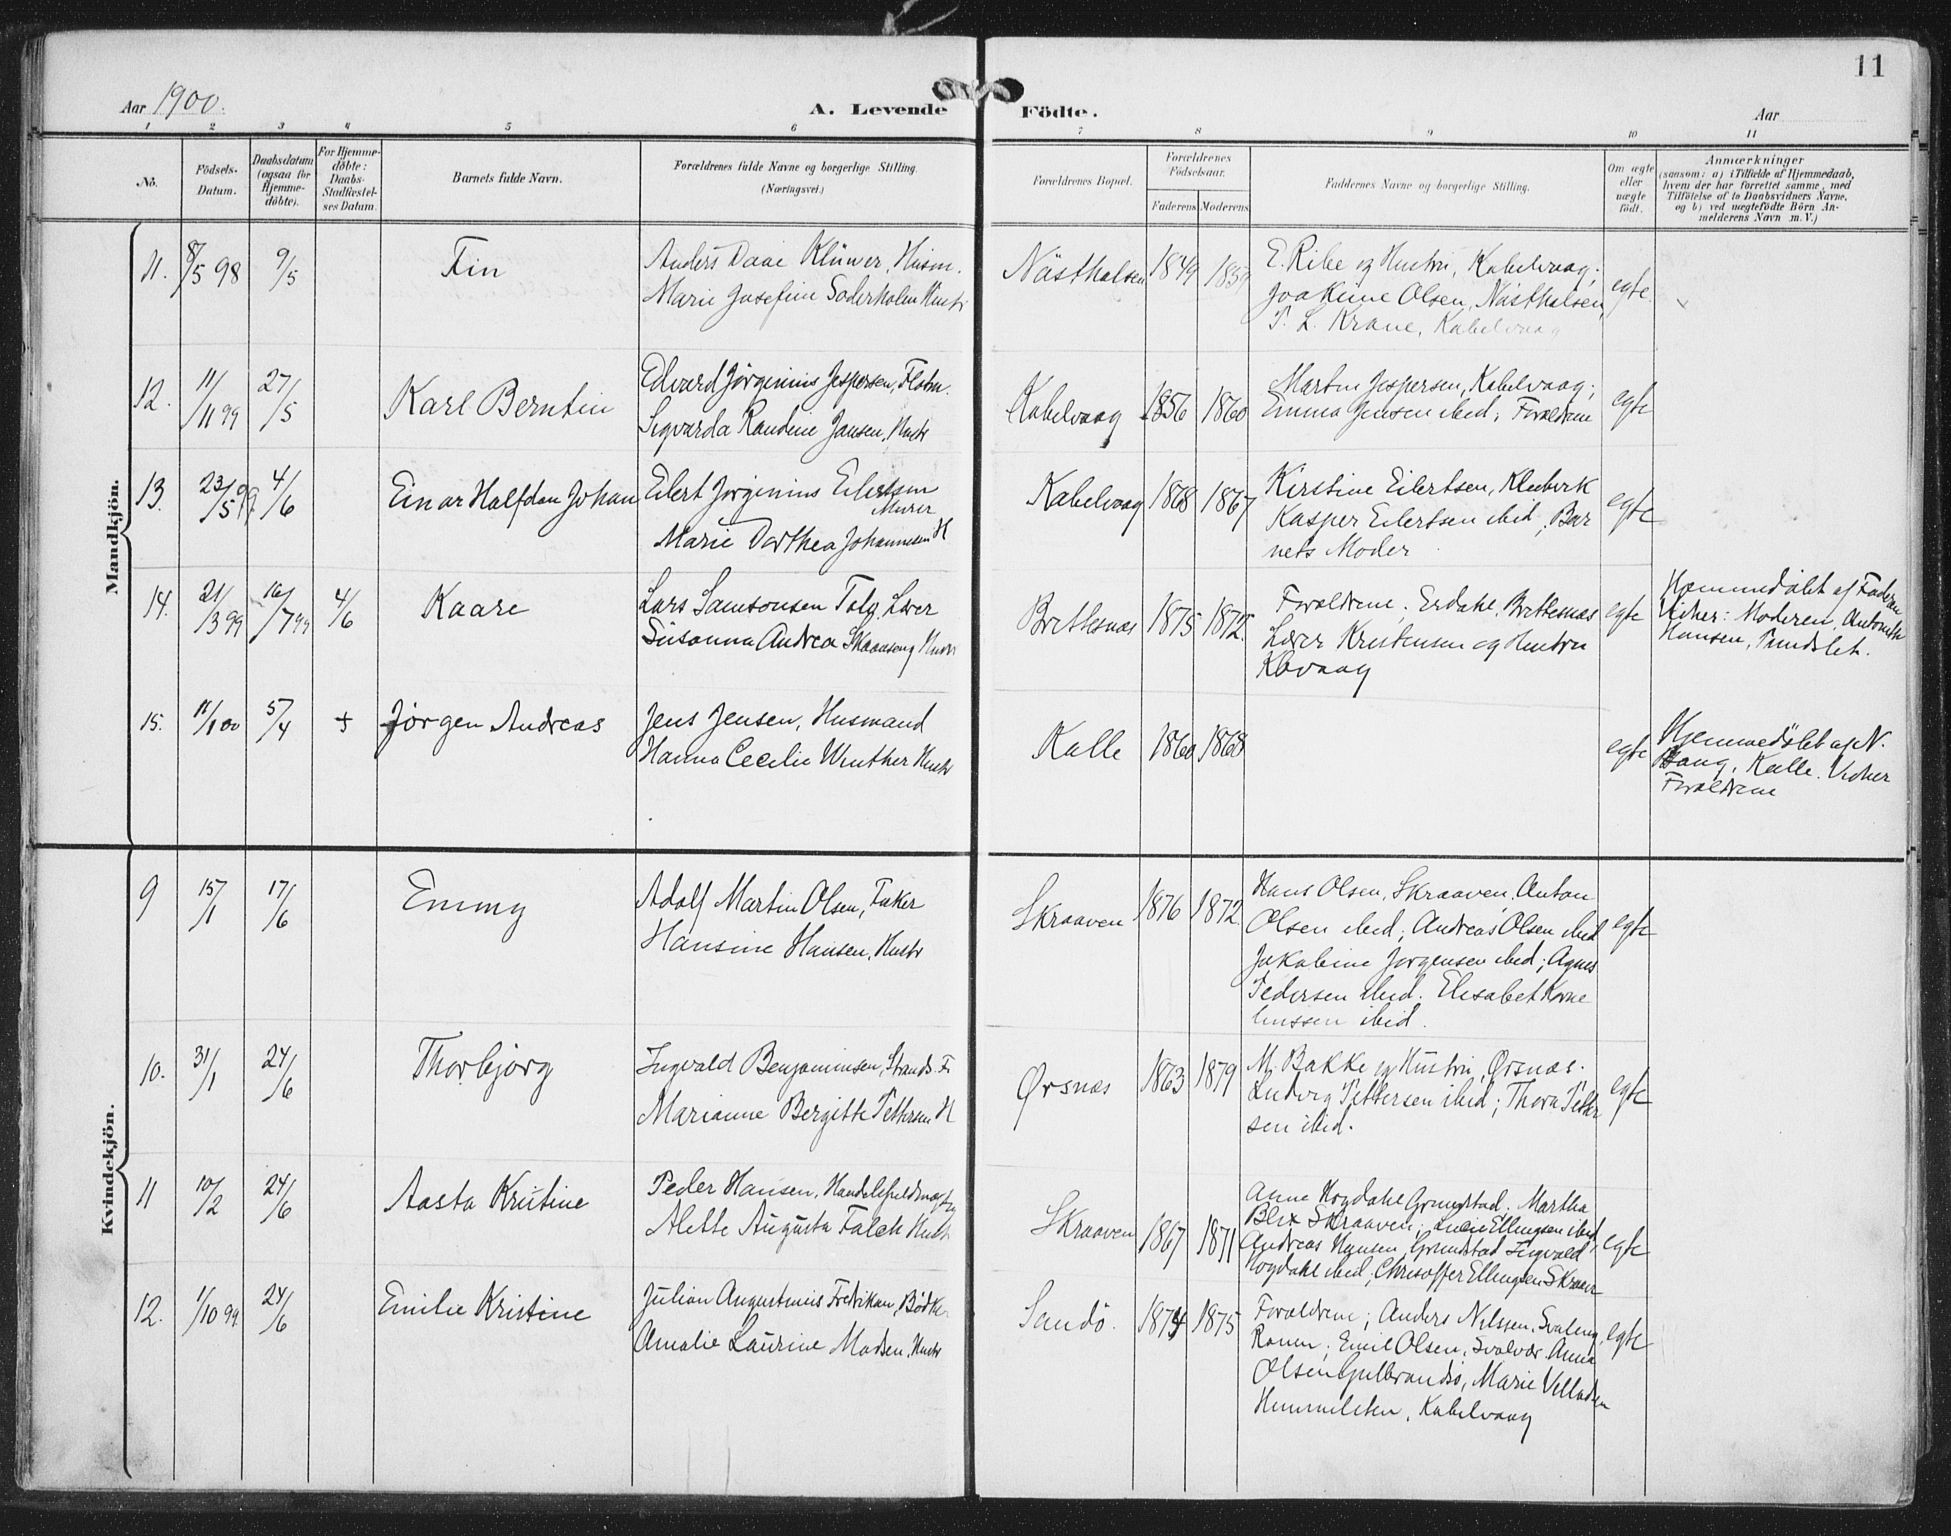 11
Aar 1900.
A. Levende Födte.
Aar
1 2 3 4 5 6 7 8 9 10 11
No.
Födsels-Datum.
Daabsdatum (ogsaa for Hjemme-döbte).
For Hjemme-döbte: Daabs-Stadfæstel-ses Datum.
Barnets fulde Navn.
Forældrenes fulde Navne og borgerlige Stilling.
(Næringsvei.)
Forældrenes Bopæl.
Forældrenes Födselsaar.
Faderens Moderens
Faddernes Navne og borgerlige Stilling.
Om ægte eller uægte födt.
Anmærkninger
(saasom: a) i Tilfælde af Hjemmedaab,
hvem der har forrettet samme, med
Tilföielse af to Daabsvidners Navne,
og b) ved uægtefödte Börn An-
melderens Navn m. V.)
Mandkjön.
11. 8/5 98 9/5 Fin
Anders Daae Klüwer, Husm.
Marie Josefine Söderholm Hustr
Nästhalsen 1849 1859
E. Ribe og Hustru, Kabelvaag;
Joakime Olsen, Nästhalsen,
P. L. Krane, Kabelvaag
egte
12. 11/11 99 27/5 Karl Berntin
Edvard Jørginius Jespersen,
Sigvarda Randine Jansen, Hustr
Kabelvaag 1856 1860
Martin Jespersen, Kabelvaag;
Emma Jensen ibid; Forældrene
egte
13. 23/5 99 4/6 Einar Halfdan Johan
Eilert Jørginius Eilertsen
Murer
Marie Dorthea Johannesen H
Kabelvaag 1868 1867
Kirstine Eilertsen,
Kasper Eilertsen ibid; Bar
nets Moder
egte
14. 21/3 99 16/7 99 4/6 Kaare
Lars Samsonsen Lærer
Susanna Andrea Hustr
Brettesnæs 1875 1872
Forældrene; Erdahl, Brettesnæs
Lærer Kristensen og Hustru
egte
Hjemmedøbt af Faderen
Vidner: Moderen,
Hansen,
15. 11/1 00 5/4 + Jørgen Andreas
Jens Jensen, Husmand
Hanna Cecilie Winther Hustr
Kalle 1860 1868
egte
Hjemmedøbt af N.
Haug, Kalle. Vidner
Forældrene
Kvindekjön.
9 15/1 17/6 Emmy
Adolf Martin Olsen, Fisker
Hansine Hansen, Hustr
Skraaven 1876 1872
Hans Olsen, Skraaven, Anton
Olsen ibid; Andreas Olsen ibid
Jakobine Jørgensen ibid; Agnes
Pedersen ibid. Elisabet Korne
liussen ibid.
egte
10. 31/1 24/6 Thorbjørg
Ingvald Benjaminsen, Strands. F.
Marianne Bergitte Pettersen H
Ørsnæs 1863 1879
M. Bakke og Hustru, Ørsnæs.
Ludvig Pettersen ibid; Thora Petter
sen ibid.
egte
11 10/2 24/6 Aasta Kristine
Peder Hansen, Handelsfuldmægtig
Alette Augusta Falch Hustr
Skraaven 1867 1871
Anne Hogdahl Grundstad. Martha
Blix Skraaven; Lucie Ellingsen ibid,
Andreas Hansen, Grundstad Ingvald
Hogdahl ibid, Christoffer Ellingsen Skraaven
egte
12. 1/10 99 24/6 Emilie Kristine
Julian Augustinius Fredriksen, Bødker
Amalie Laurine Madsen, Hustr
Sandö. 1874 1875
Forældrene; Anders Nilssen,
Emil Olsen, Svolvær Anna
Olsen Gulbrandsö, Marie Velladsen
Kabelvaag
egte